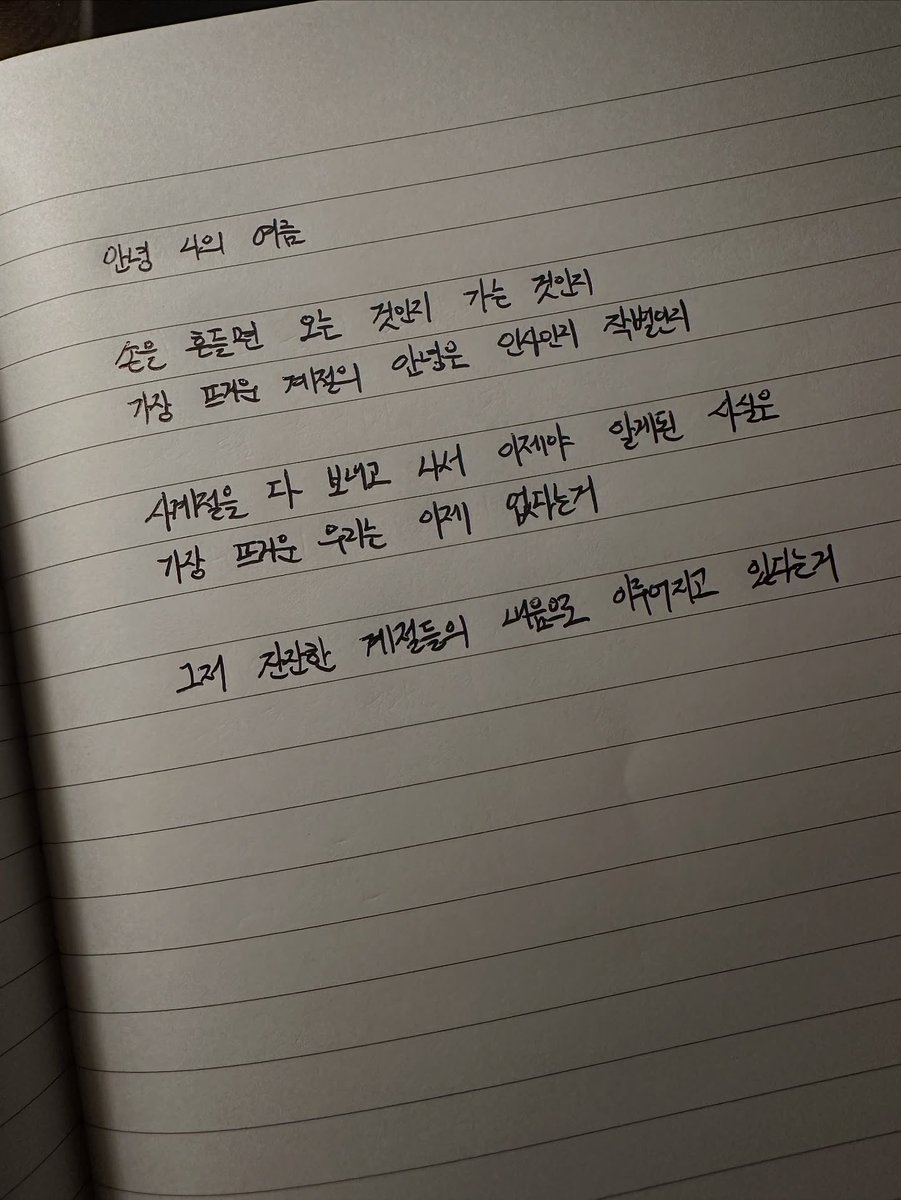 안녕 나의 여름
손을 흔들면 오는 것인지 가는 것인지
가장 뜨거운 계절의 안녕은 인사인지 작별인지
사계절을 다 보내고 나서 이제야 알게된 사실은
가장 뜨거운 우리는 이제 없다는거
그저 잔잔한 계절들의 내음으로 이루어지고 있다는거